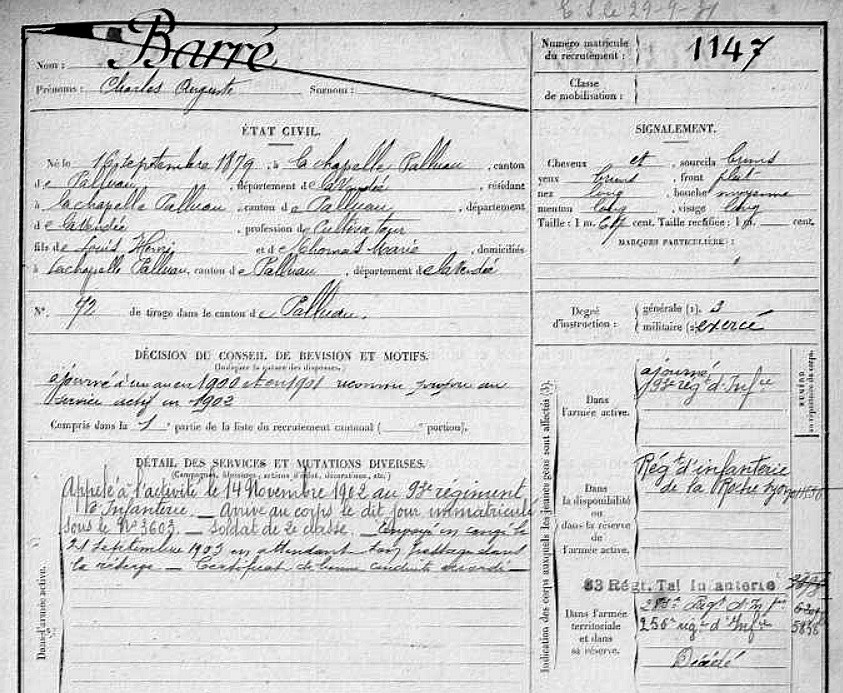 Barré
Nom :
Prénoms : Charles Auguste Surnom :
Numéro matricule
du recrutement : 1147
Classe
de mobilisation :
ÉTAT CIVIL.
Né le 16 septembre 1879, à la chapelle Palluau, canton
de Palluau, département de la Vendée, résidant
à la chapelle Palluau, canton de Palluau, département
de la Vendée, profession de Cultivateur
fils de Louis Henri et de Thomas Marie, domiciliés
à la chapelle Palluau, canton de Palluau, département de la Vendée
N° 72 de tirage dans le canton de Palluau.
SIGNALEMENT.
Cheveux et sourcils bruns
yeux bruns, front plat
nez long, bouche moyenne
menton long, visage long
Taille : 1 m. cent. Taille rectifiée : 1 m. cent.
MARQUES PARTICULIÈRES :
Degré
d'instruction :
générale (1). 3
militaire (2) exercé
DÉCISION DU CONSEIL DE REVISION ET MOTIFS.
(Indiquer la nature des dispenses.)
ajourné à un an en 1900 et en 1901 reconnu propre au
service actif en 1902
Compris dans la 1 partie de la liste du recrutement cantonal ( portion).
DÉTAIL DES SERVICES ET MUTATIONS DIVERSES.
(Campagnes, blessures, actions d'éclat, décorations, etc.)
Dans l'armée active.
Appelé à l'activité le 14 Novembre 1902 au 93e régiment
d'Infanterie. — Arrivé au corps le dit jour immatriculé
sous le N° 3603. — Soldat de 2e classe. — Envoyé en congé le
21 septembre 1903 en attendant son passage dans
la réserve. — Certificat de bonne conduite accordé —
Indication des corps auxquels les jeunes gens sont affectés (3).
NUMÉRO
Dans
l'armée active.
ajourné
93e régt d'Infie
Dans
la disponibilité
ou
dans la réserve
de
l'armée active.
Régt d'infanterie
de la Roche s/yon
83 Régt. Tal Infanterie
Dans l'armée
territoriale
et dans
sa réserve.
256e régt d'Infie 5838
Décédé